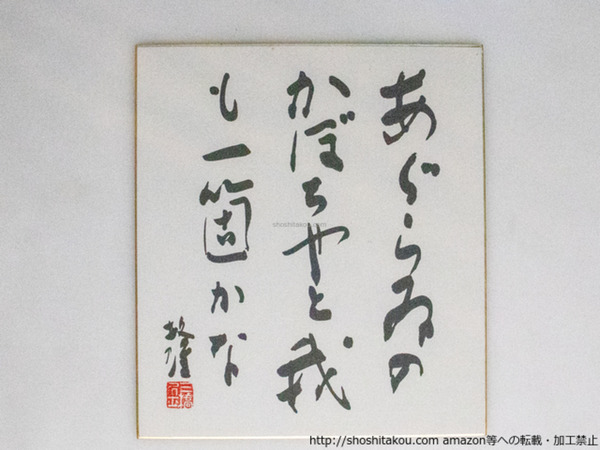 あぐらゐの
かぼちやと我
も一箇かな
shoshitakou.com
http://shoshitakou.com amazon等への転載・加工禁止